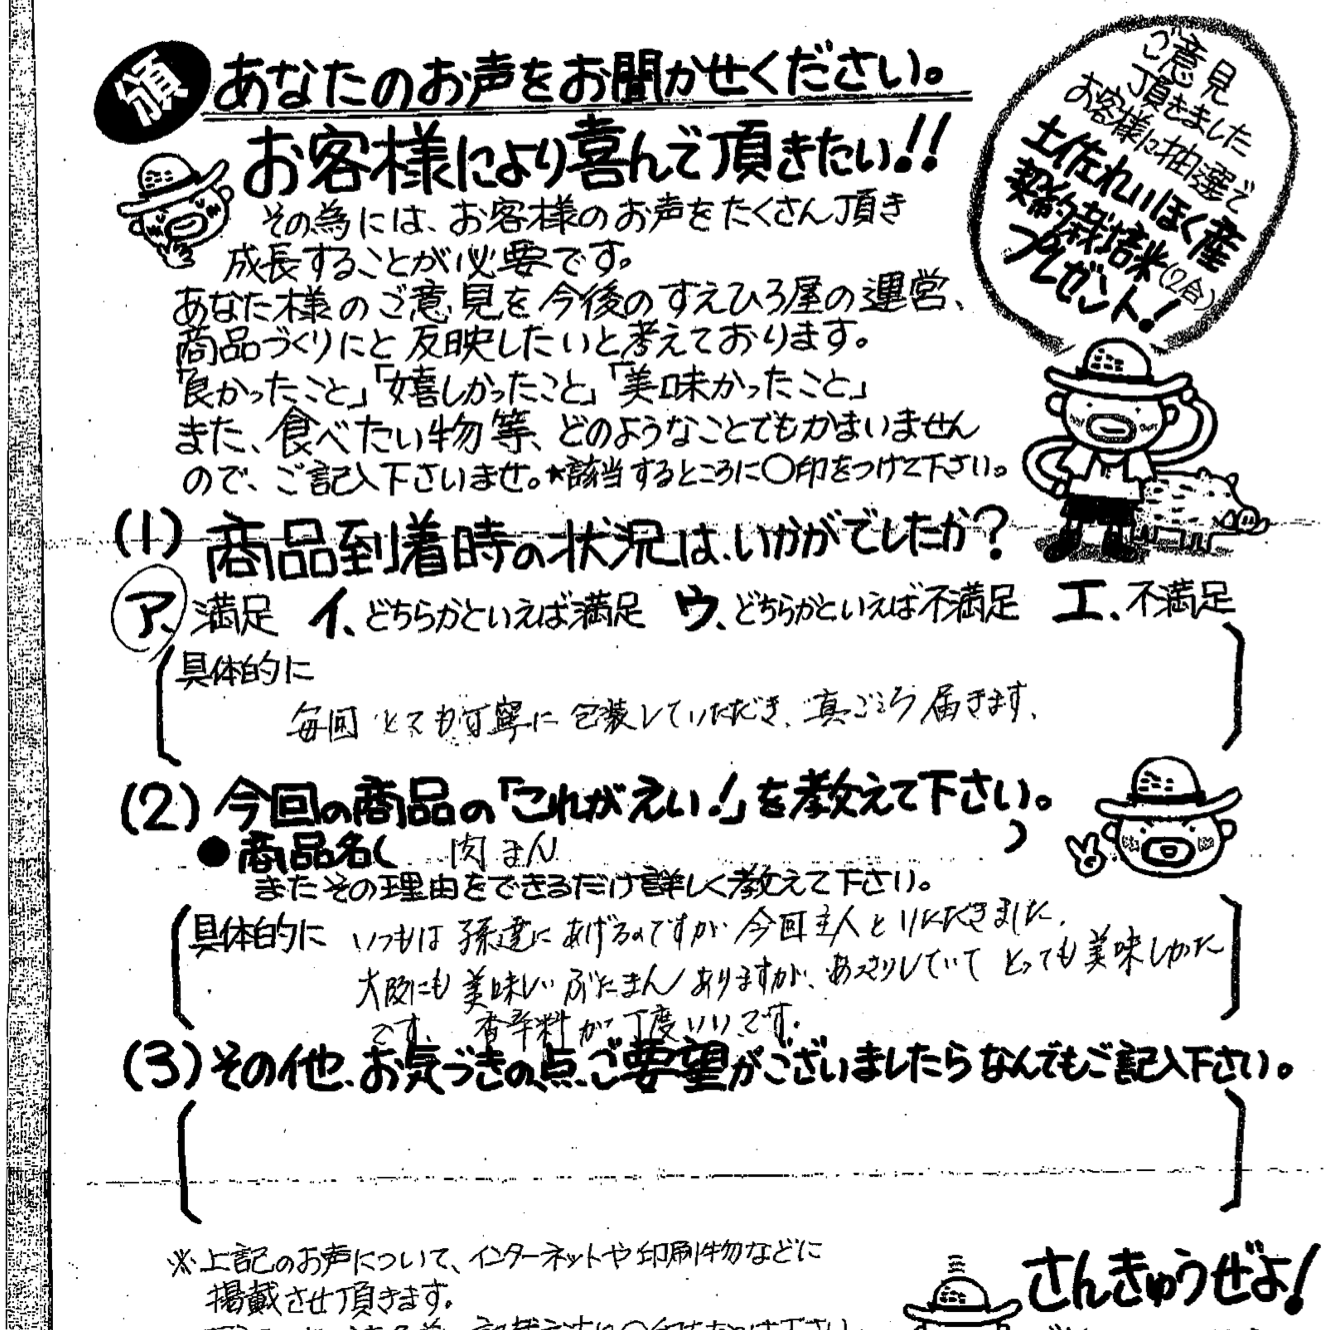 頒 あなたのお声をお聞かせください。
お客様により喜んで頂きたい!!
その為には、お客様のお声をたくさん頂き
成長することが必要です。
あなた様のご意見を今後のすえひろ屋の運営、
商品づくりにと反映したいと考えております。
「良かったこと」「嬉しかったこと」「美味かったこと」
また、食べたい物等、どのようなことでもかまいません
ので、ご記入下さいませ。★該当するところに〇印をつけて下さい。
ご意見
頂きました
お客様に抽選で
土佐れいほく産
契約栽培米(2合)
プレゼント!
(1) 商品到着時の状況は、いかがでしたか?
ア、満足 イ、どちらかといえば満足 ウ、どちらかといえば不満足 エ、不満足
具体的に
毎回 とても丁寧に 包装していただき、真ごころ届きます、
(2) 今回の商品の「これがえい!」を教えて下さい。
●商品名( 肉まん )
またその理由をできるだけ詳しく教えて下さい。
具体的に いつもは 孫達に あげるのですが 今回主人と いただきました、
大阪にも 美味しい ぶたまん ありますが、あっさりしていて とっても美味しかった
です、 香辛料が 丁度いいです。
(3) その他、お気づきの点、ご要望がございましたらなんでもご記入下さい。
※上記のお声について、インターネットや印刷物などに
掲載させ頂きます。
さんきゅうぜよ!